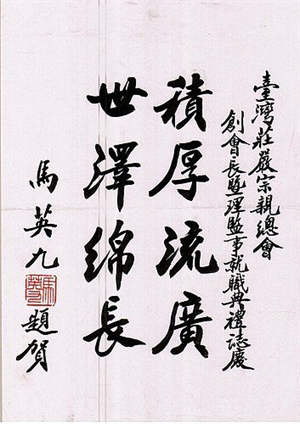 臺灣莊嚴宗親總會
創會長暨理監事就職典禮誌慶
積厚流廣
世澤綿長
馬英九 題賀